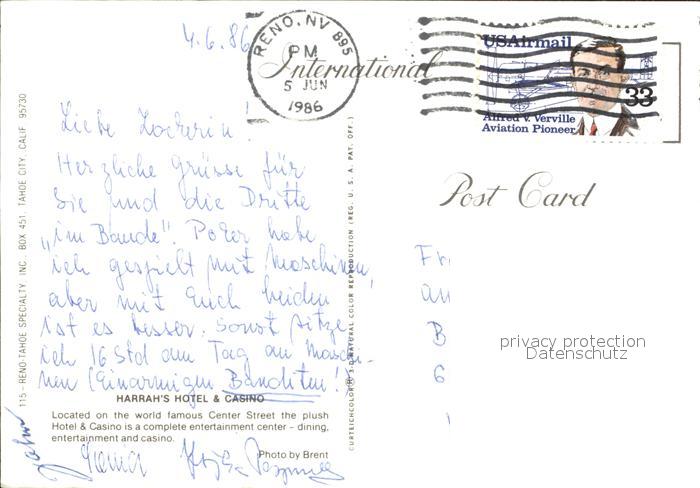 4.6.86
RENO, NV 895
PM
5 JUN
1986
International
USAirmail
33
Alfred V. Verville
Aviation Pioneer
Post Card
Liebe Zockerin!
Herzliche Grüsse für
Sie und die Dritte
„im Bunde". Poker habe
ich gespielt mit Maschinen,
aber mit Euch beiden
ist es besser. Sonst sitze
ich 16 Std am Tag an Maschi-
nen (Einarmigen Banditen!)
HARRAH'S HOTEL & CASINO
Located on the world famous Center Street the plush
Hotel & Casino is a complete entertainment center – dining,
entertainment and casino.
Photo by Brent
115 – RENO-TAHOE SPECIALTY INC. BOX 451, TAHOE CITY, CALIF 95730
CURTEICHCOLOR® 3-D NATURAL COLOR REPRODUCTION (REG. U. S. A. PAT. OFF.)
Fr
an
B
6
privacy protection
Datenschutz